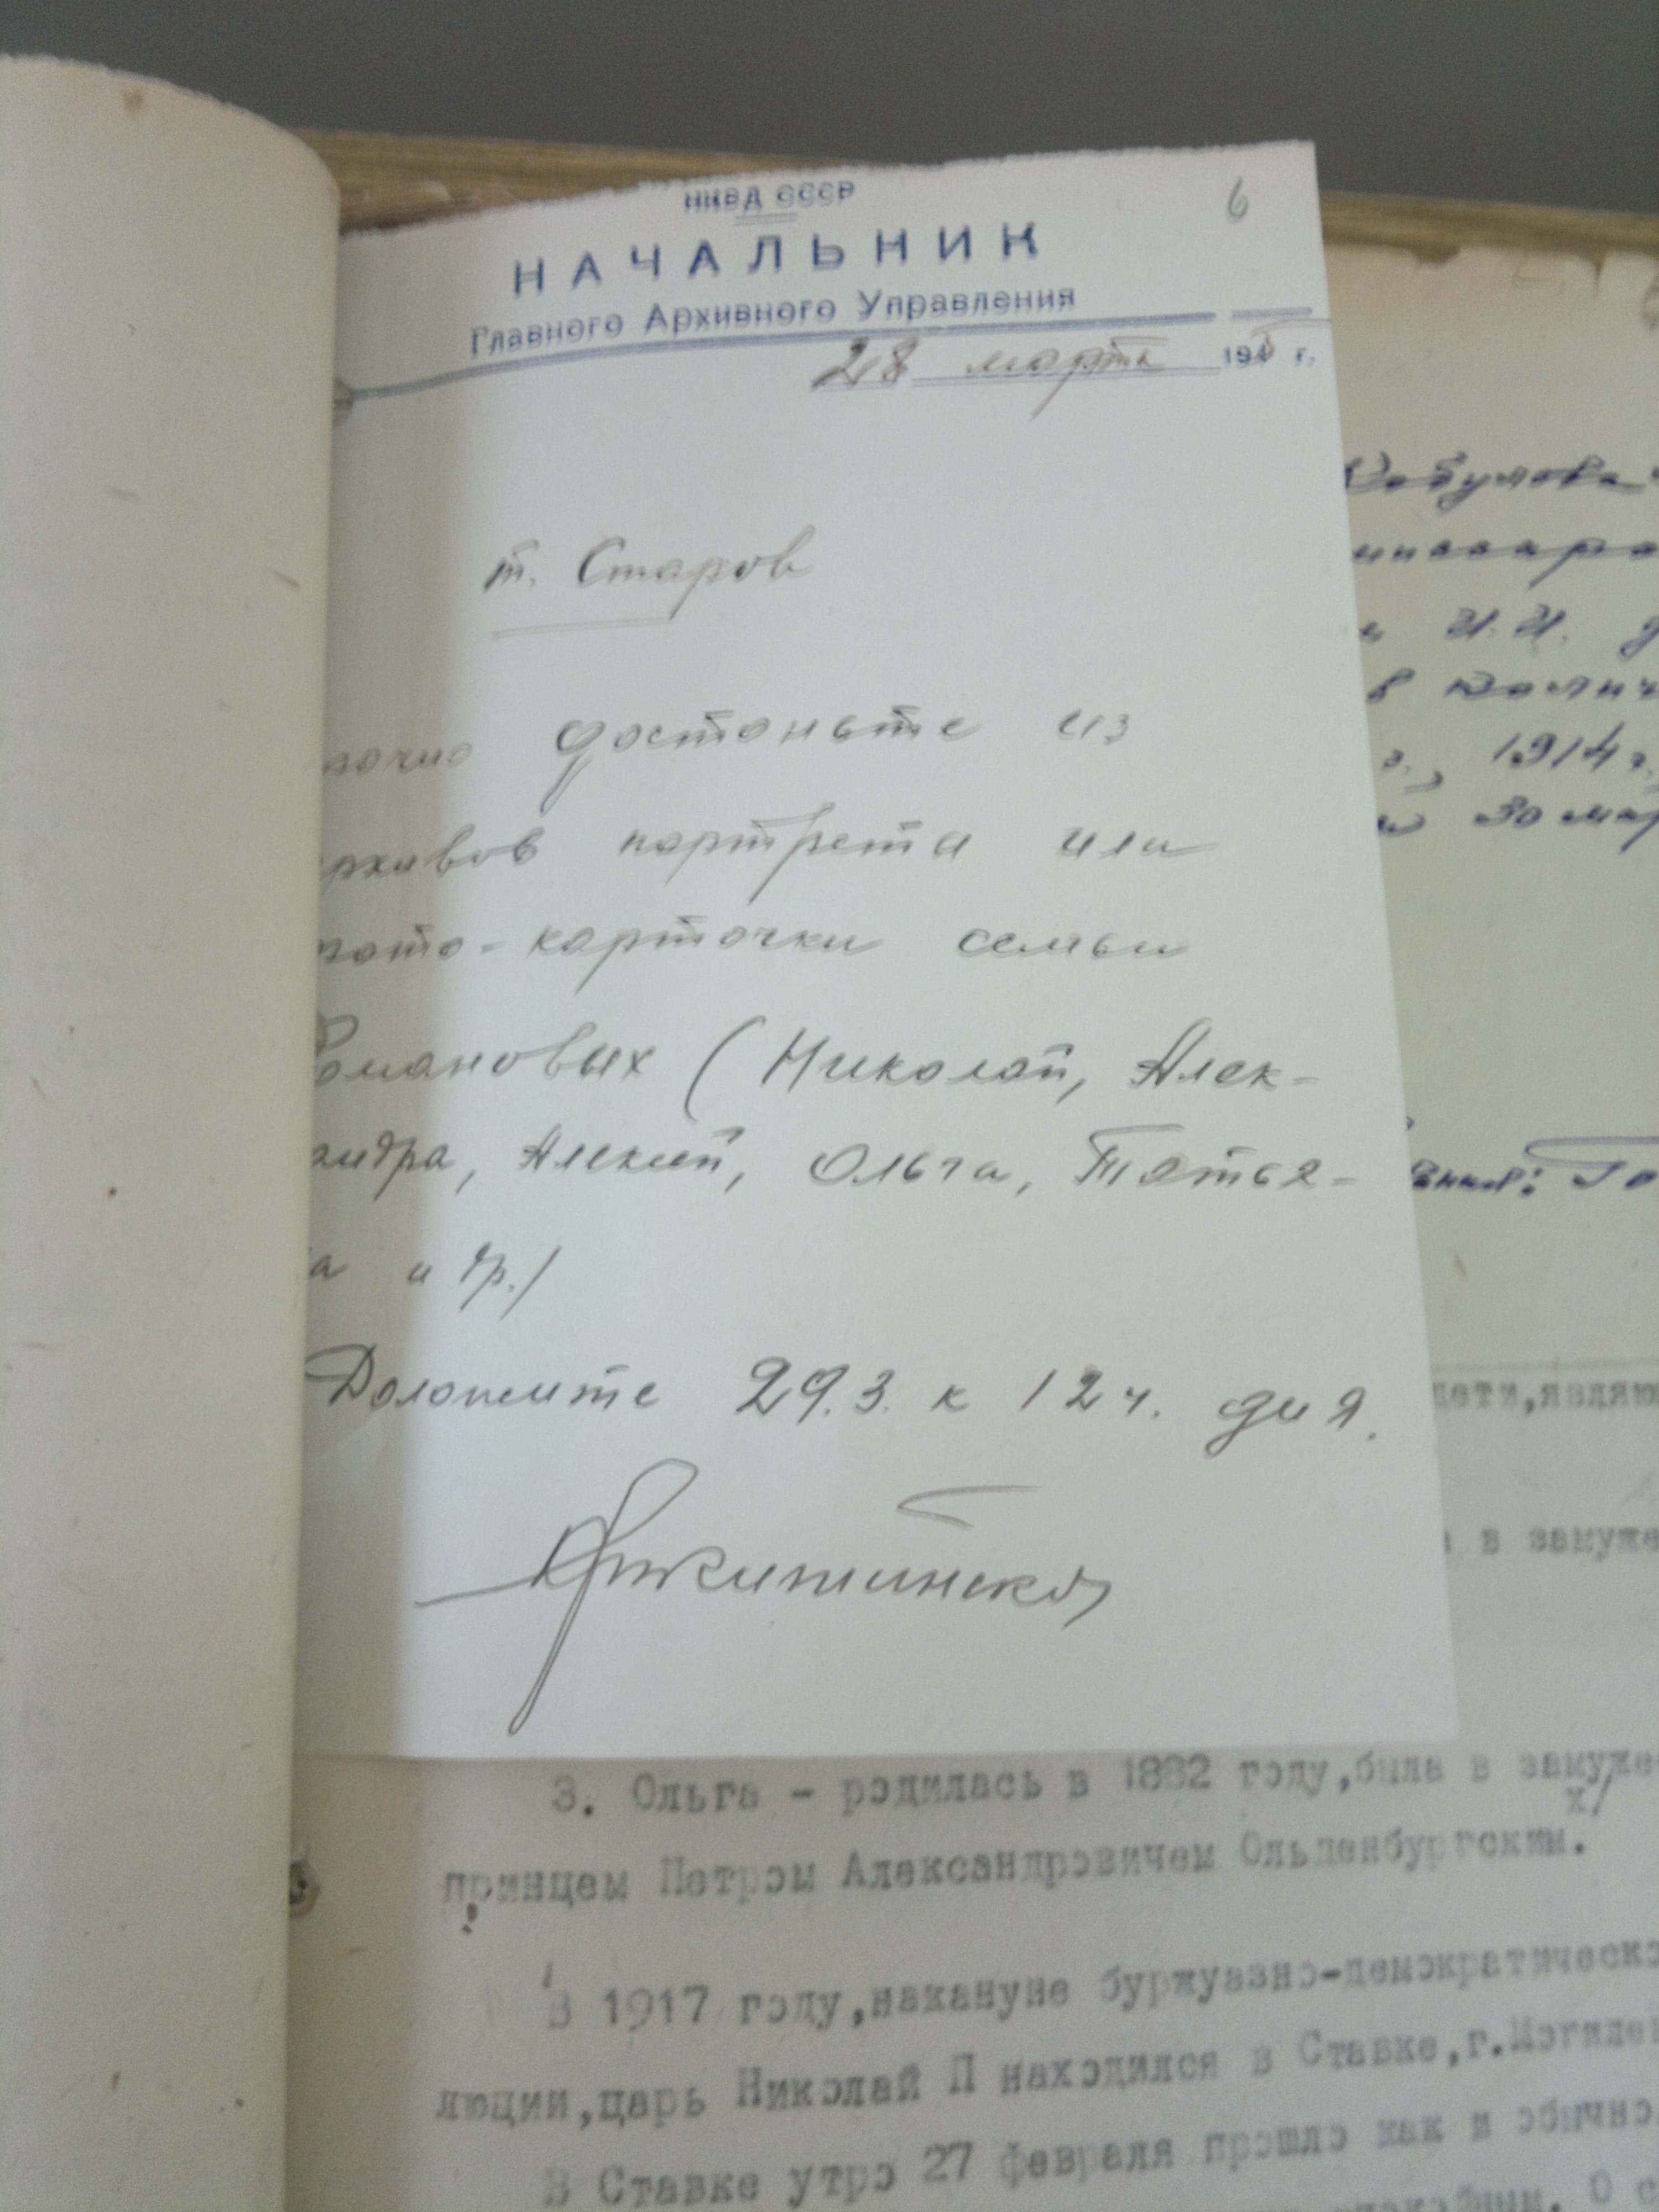 НКВД СССР
6
НАЧАЛЬНИК
Главного Архивного Управления
28 марта 194 г.
т. Старов
рочно достоньте из
рхивов портрета или
фото-карточки семьи
Романовых (Николай, Алек-
андра, Алексей, Ольга, Татья-
а и др.)
Доложите 29.3. к 12 ч. дня.
Кобулова
и И.И. д
в колич
г., 1914 г.
30 мар
вания: Го
дети,являю
в замуже
3. Ольга - родилась в 1882 году,была в замуже
х/
принцем Петром Александровичем Ольденбургским.
В 1917 году,накануне буржуазно-демократическо
люции,царь Николай П находился в Ставке,г.Могилев
В Ставке утро 27 февраля прошло как и обычно
О с